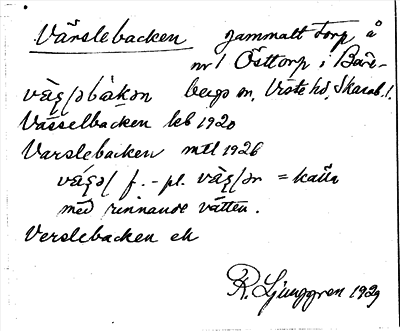 Värslebacken gammalt torp å
nr 1 Östtorp i Bäre-
bergs sn, Viste hd, Skarab. l.
Vässelbacken kb 1920
Varslebacken mtl 1926
f. - pl. = källa
med rinnande vatten.
Verslebacken ek
R. Ljunggren 1929